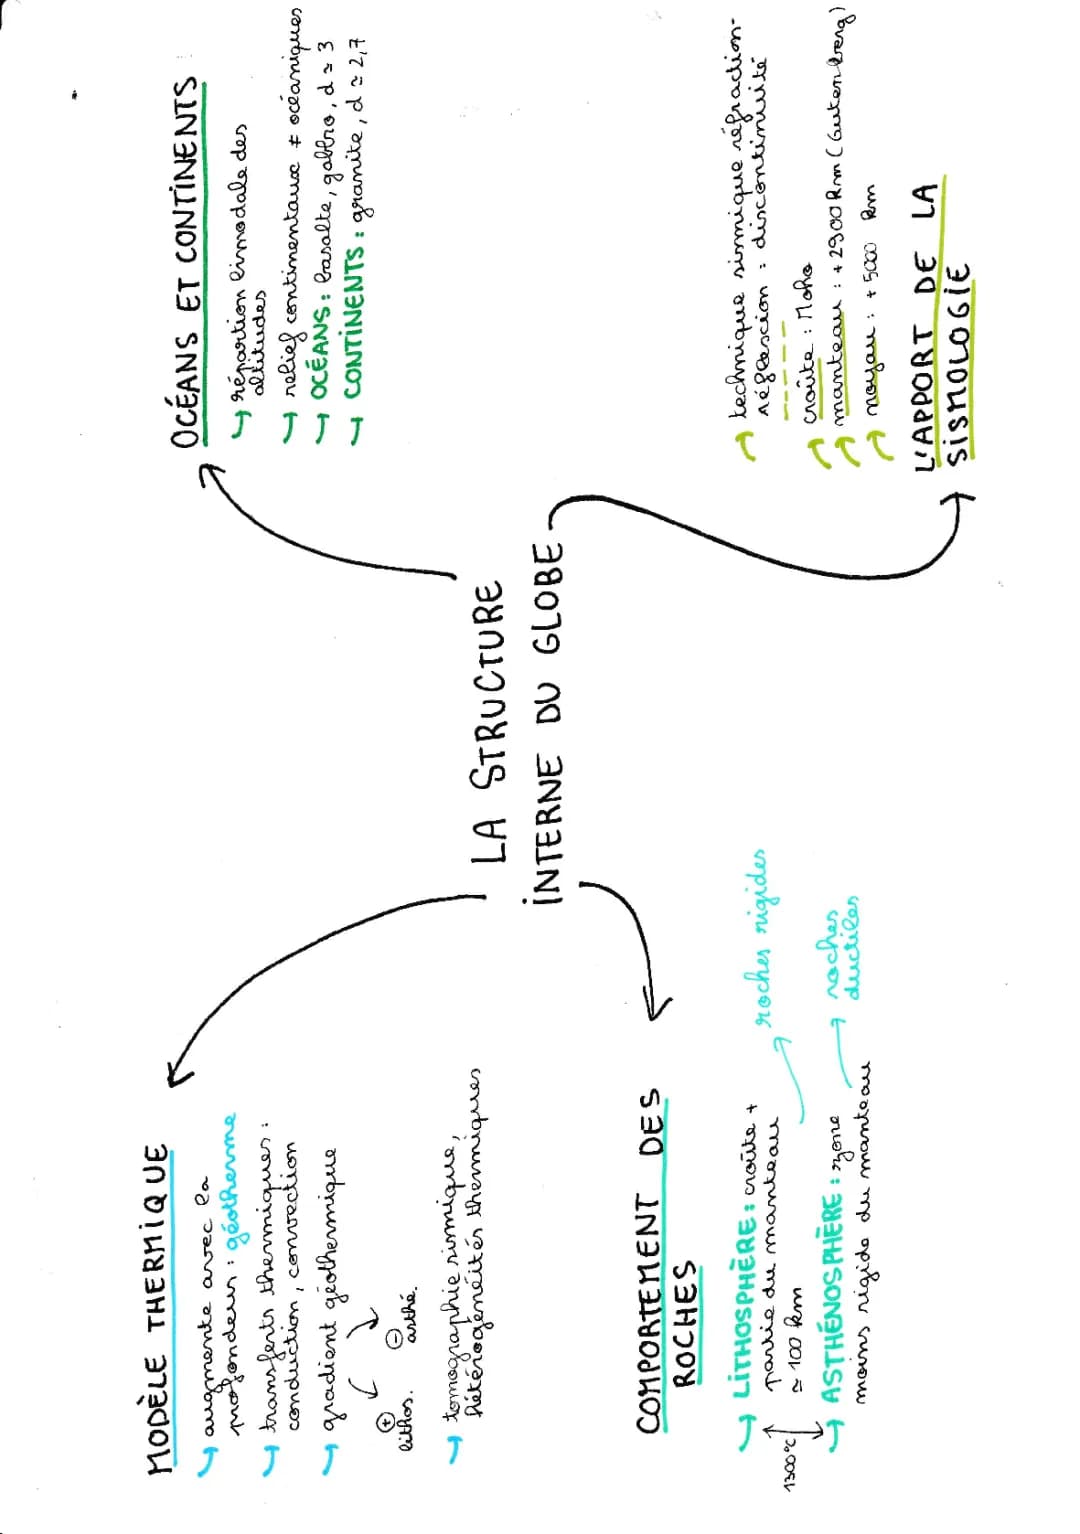 LA STRUCTURE
INTERNE DU GLOBE
MODÈLE THERMIQUE
→ augmente avec la
profondeur : géotherme
→ transferts thermiques :
conduction, convection
→ gradient géothermique
⊕ ⊖
lithos. asthé.
→ tomographie sismique,
hétérogénéités thermiques
OCÉANS ET CONTINENTS
→ répartion bimodale des
altitudes
→ relief continentaux ≠ océaniques
→ OCÉANS : basalte, gabbro, d ≃ 3
→ CONTINENTS : granite, d ≃ 2,7
COMPORTEMENT DES
ROCHES
→ LITHOSPHÈRE : croûte +
partie du manteau → roches rigides
≃ 100 km
1300°C
→ ASTHÉNOSPHÈRE : zone → roches
ductiles
moins rigide du manteau
→ technique sismique réfraction-
réflexion : discontinuité
→ croûte : Moho
→ manteau : + 2900 km (Gutenberg)
→ noyau : + 5000 km
L'APPORT DE LA
SISMOLOGIE